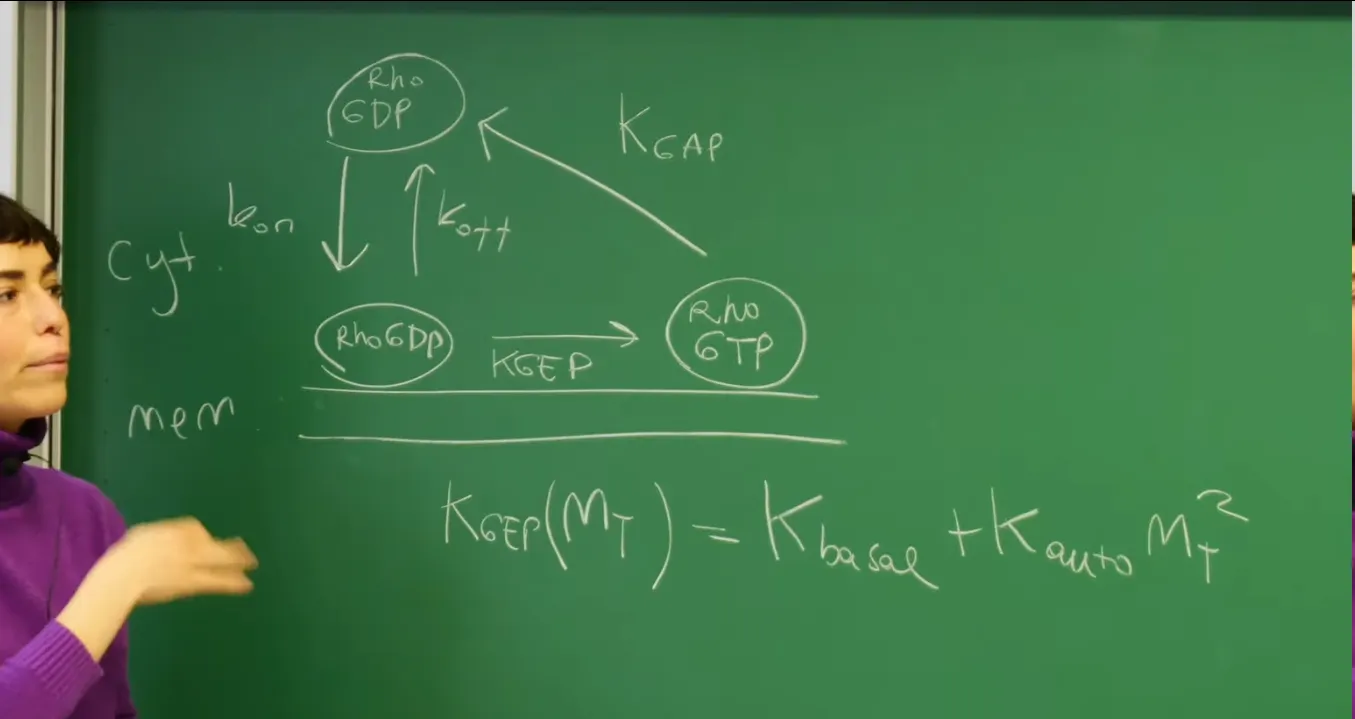 Rho
GDP
KGAP
kon
koff
Cyt.
RhoGDP
KGEP
Rho
GTP
mem.
KGEP(MT) = Kbasal + Kauto MT²